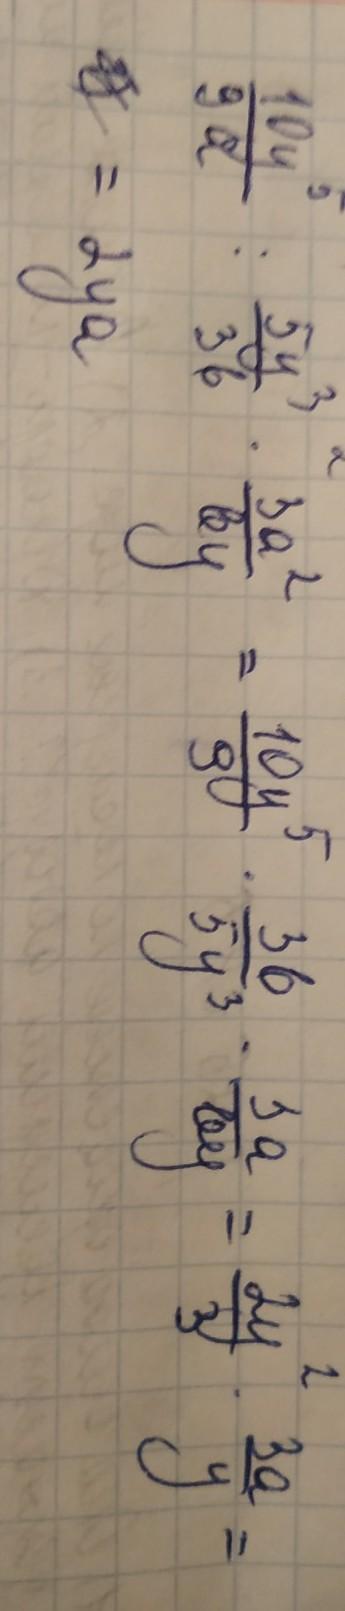 10y⁵/9a : 5y³/3b · 3a²/by = 10y⁵/9 · 3b/5y³ · 3a/by = 2y²/3 · 3a/y =
= 2ya